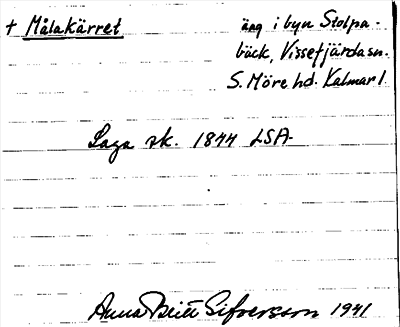 + Målakärret äng i byn Stolpa-
bäck, Vissefjärda sn.
S. Möre hd. Kalmar l.
Laga sk. 1844 LSA
Anna Britt Sifversson 1941